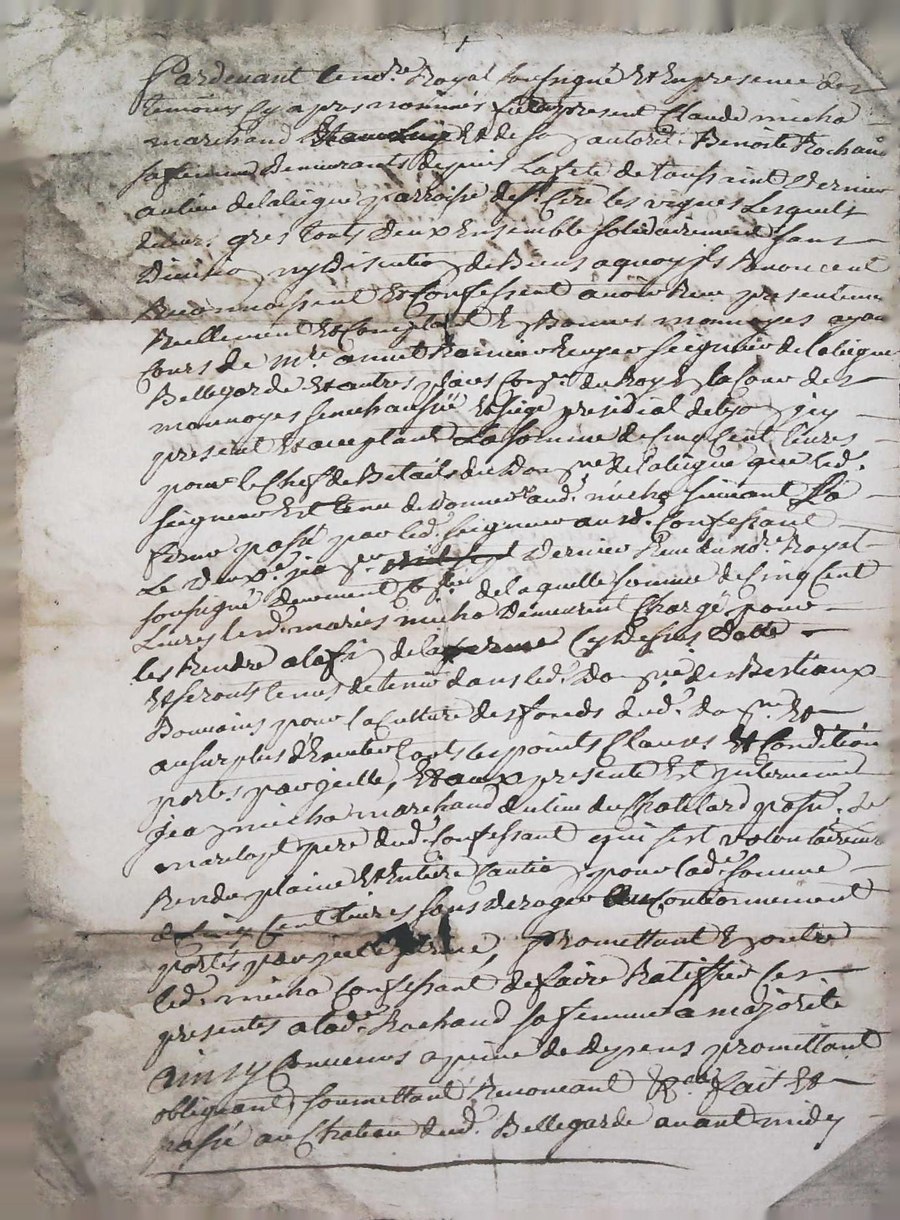 Pardevant le no.re Royal soussigné Et En presence des
temoins Cy apres nommés present Claude micha
marchand Et de sa autorité Benoite Rochand
sa femme Demeurants depuis La fete de toussaint Dernier
au lieu de laliegue parroisse de St Cire les vignes Lesquels
de leurs gres touts Deux Ensemble solidairement sans
Division ny discution de Biens a quoy ils Renoncent
Reconnoissent Et Confessent avoir Reçu presentement
Reellement Et Comptant En Bonnes monnoyes ayant
Cours de m.re Seigneur de laliegue
Bellegarde Et autres places Con.er du Roy En la Cour des
monnoyes senechaussée Et siege presidial de Lyon icy
present Et acceptant La somme de Cinq Cent livres
pour le Chef de Betails du Domaine de laliegue que led.
seigneur Est tenu de donner aud. micha suivant La
ferme passée par led. seigneur aud. Confessant
Le dernier Reçu du no.re Royal
soussigné de laquelle somme de Cinq Cent
Livres les d. mariés micha Demeurent Chargé pour
les Rendre a la fin de la ferme Cy dessus Datte
Et seronts tenus de tenir dans led. Domaine des Bestiaux
Bouvains pour la Culture des fonds dud. Domaine Et
au surplus d'Executer touts les points Clauses Et Condition
portés par icelle, Et aux presente Est intervenu
Jean micha marchand du lieu du Chatelard parr. de
pere dud. Confessant qui s'est volontairement
Rendu plaine Et Entiere Caution pour lad. somme
de Cinq Cent livres sans deroger au Cautionnement
portés par icelle ferme promettant En outre
led. micha Confessant de faire Ratiffier Ces
presentes a lad. Rochand sa femme a majorité
ainsy Convenus a peine de depens promettant
obligeant, soumettant Renonceant fait Et
passé au Chateau dud. Bellegarde avant midy